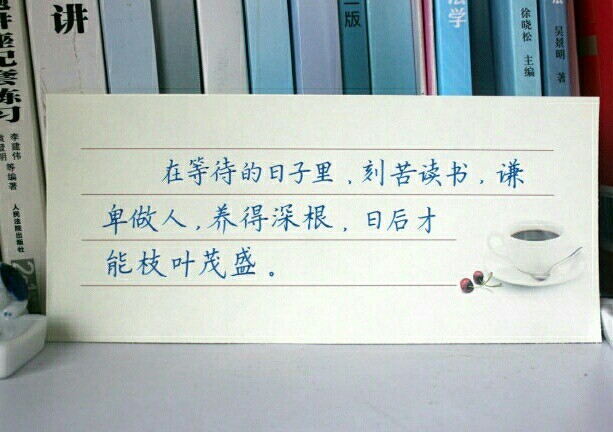 讲
座配套练习
李建伟
袁登明 等编著
人民法院出版社
二版
法学
徐晓松 主编
吴景明 著
在等待的日子里,刻苦读书,谦
卑做人,养得深根,日后才
能枝叶茂盛。